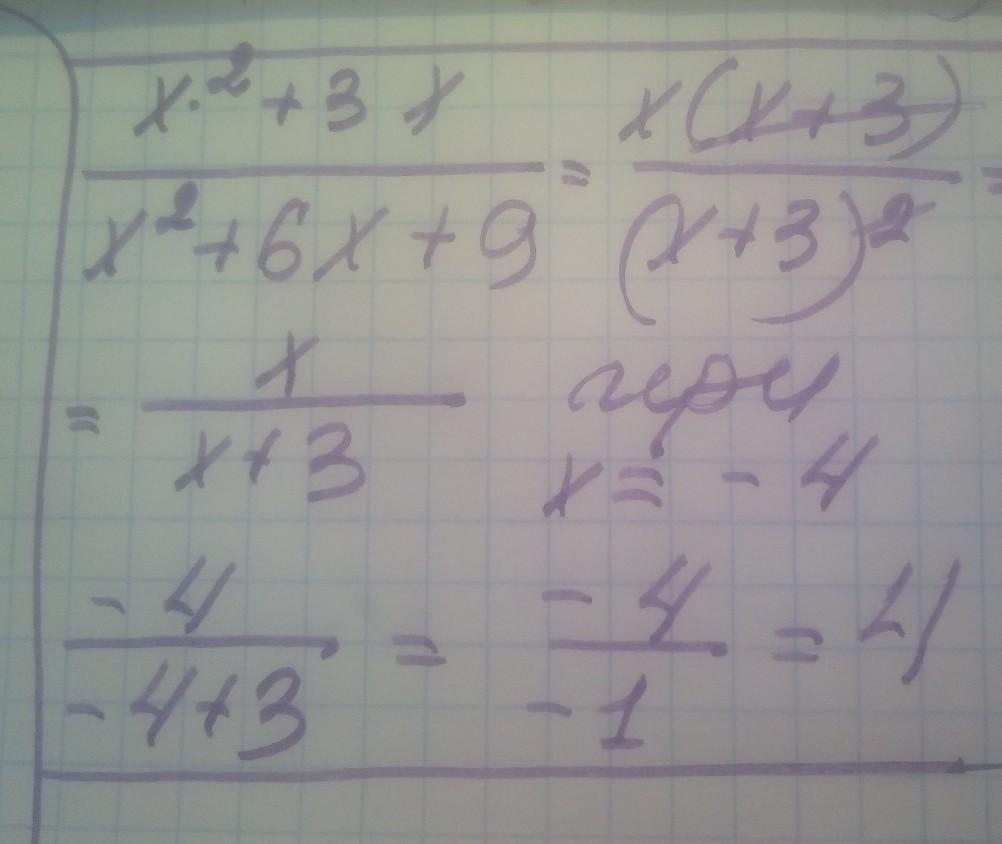 x² + 3x / x² + 6x + 9 = x(x+3) / (x+3)² =
= x / x+3 при
x = - 4
-4 / -4+3 = -4 / -1 = 4